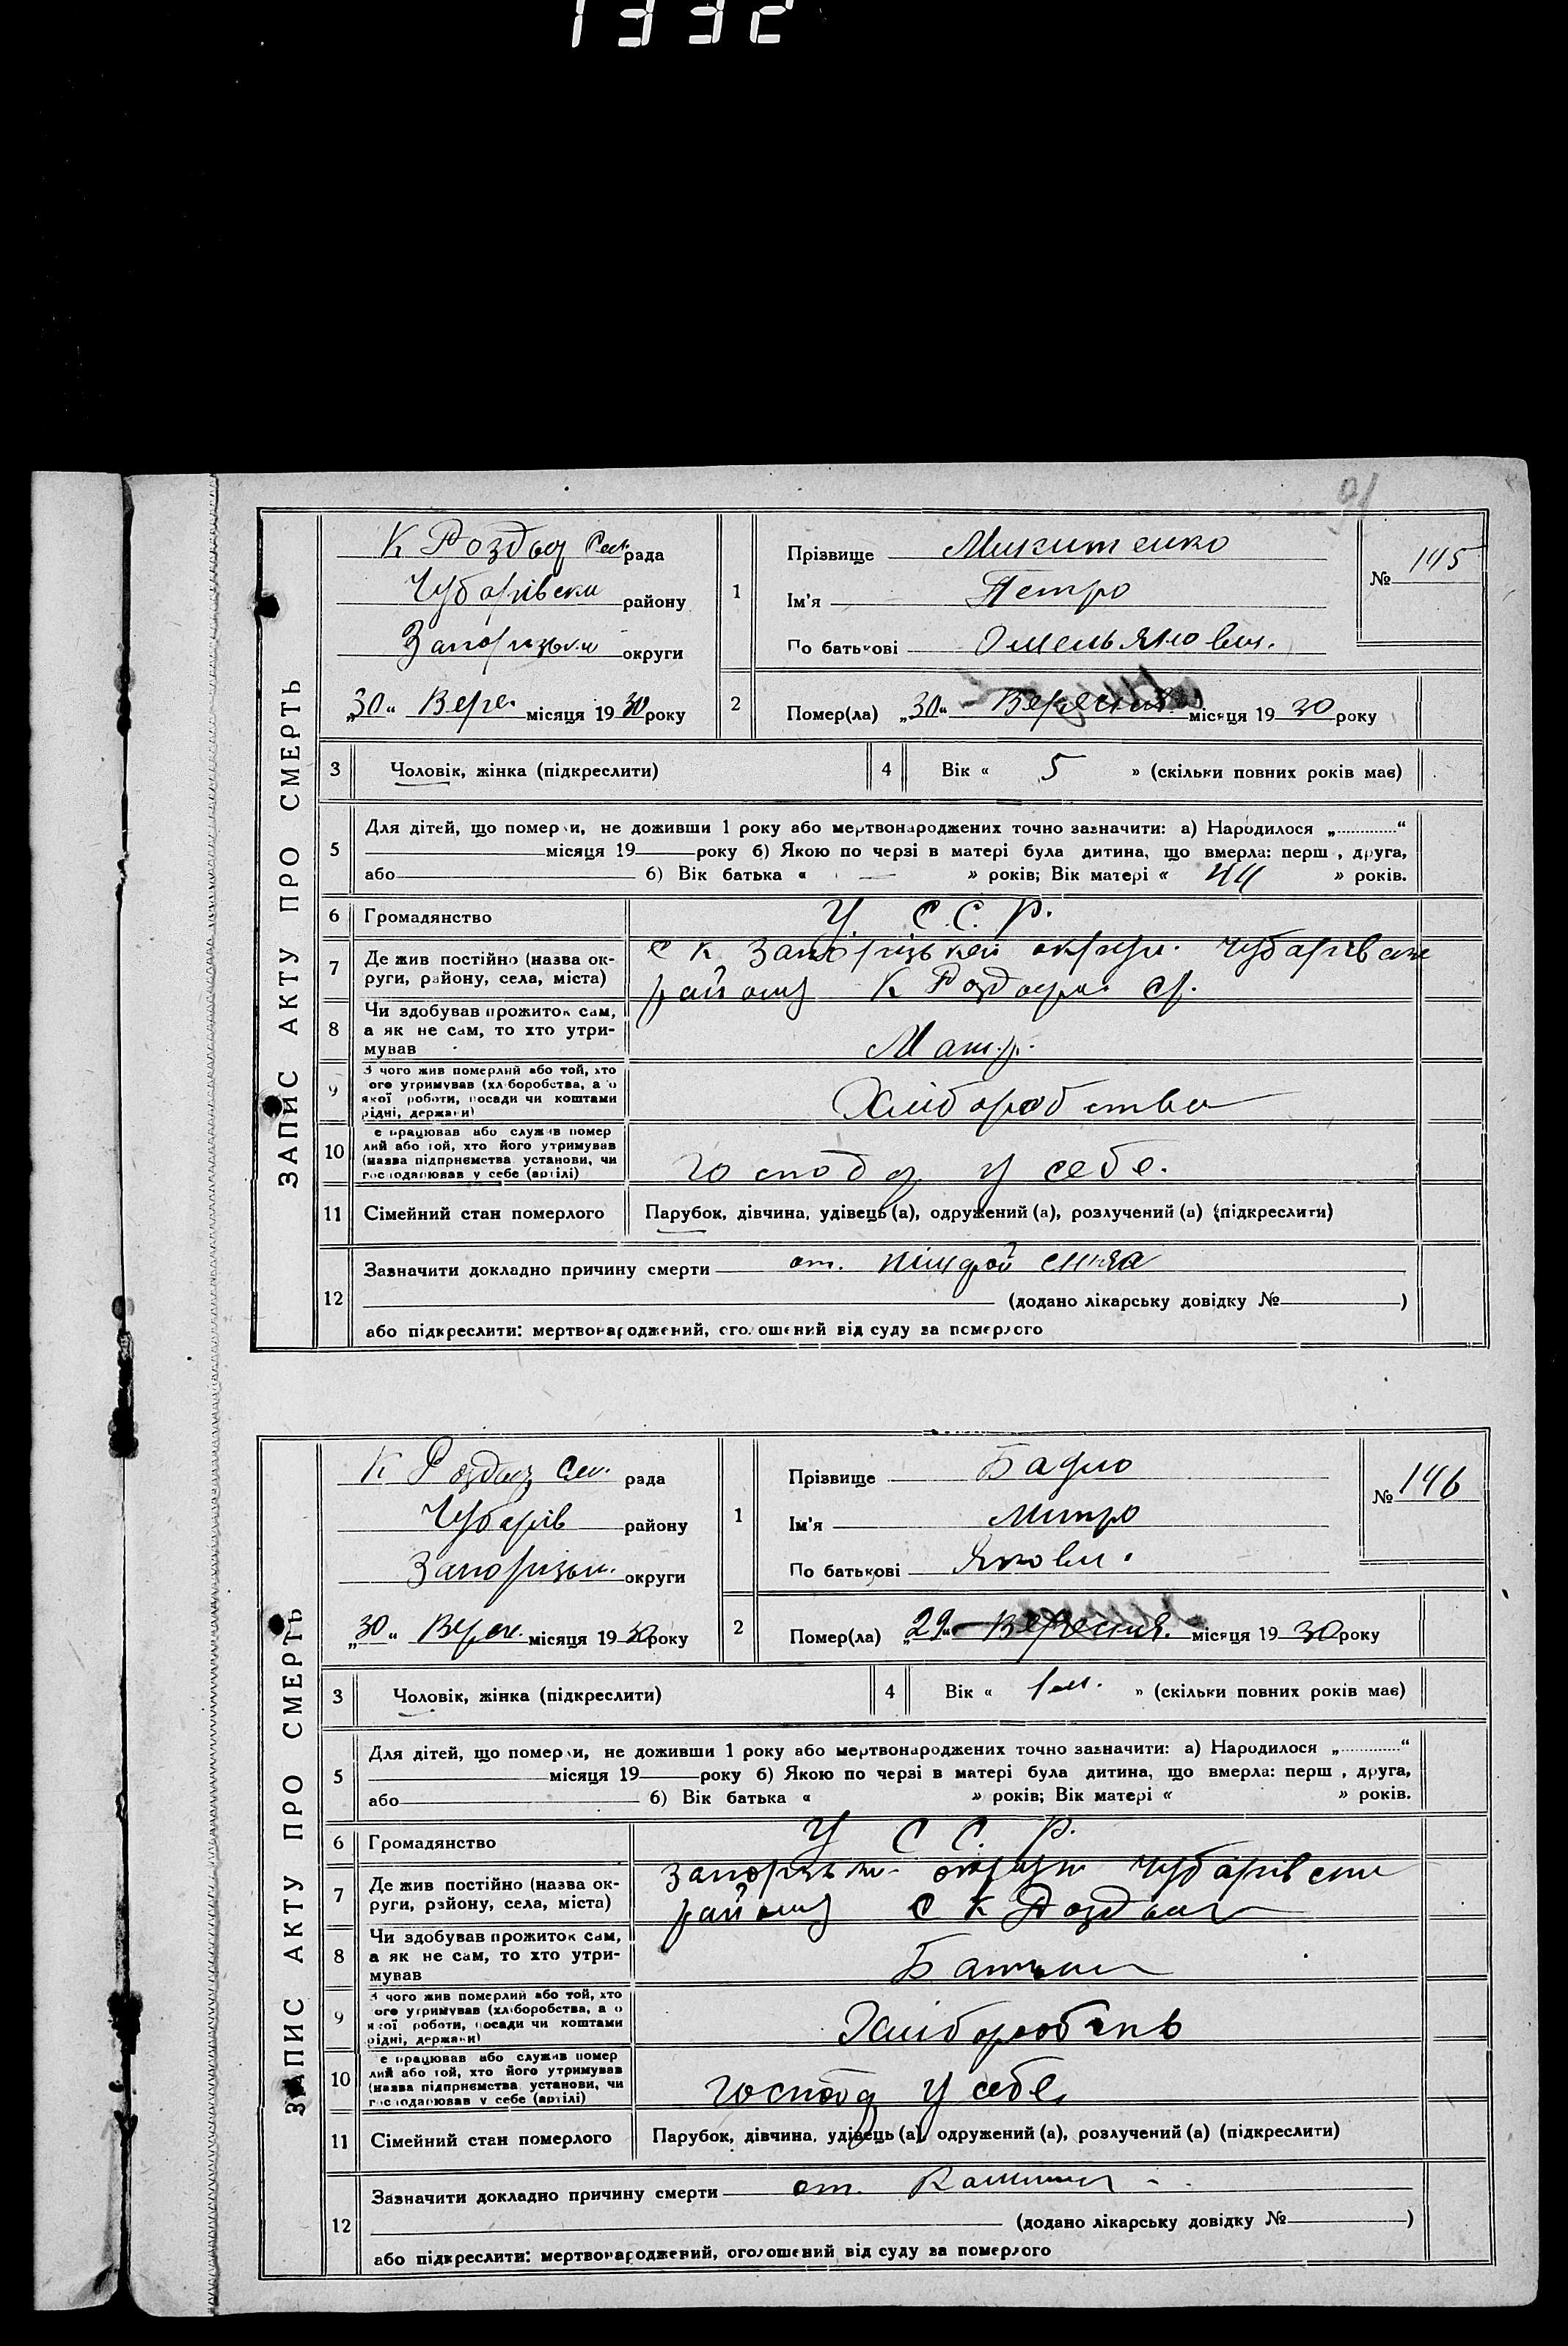 1332
91
ЗАПИС АКТУ ПРО СМЕРТЬ
К Роздор Сел. рада
Чубарівськ району
Запорізьки округи
„30“ Вере. місяця 1930 року
1 Прізвище Микитенко
Ім'я Петро
По батькові Омельянович.
№ 145
2 Помер(ла) „30“ Вересня місяця 1930 року
3 Чоловік, жінка (підкреслити)
4 Вік « 5 » (скільки повних років має)
5 Для дітей, що померли, не доживши 1 року або мертвонароджених точно зазначити: а) Народилося „ “
місяця 19 року б) Якою по черзі в матері була дитина, що вмерла: перш , друга,
або б) Вік батька « — » років; Вік матері « 44 » років.
6 Громадянство У. С. С. Р.
7 Де жив постійно (назва ок-
руги, району, села, міста)
с К Запорізької округи Чубарівськ
району К Роздори
8 Чи здобував прожиток сам,
а як не сам, то хто утри-
мував
Мат.
9 З чого жив померлий або той, хто
ого утримував (хліборобства, а о
якої роботи, посади чи коштами
рідні, держави)
Хліборобство
10 е працював або служив помер
лий або той, хто його утримував
(назва підприємства установи, чи
господарював у себе (артілі)
господ у себе.
11 Сімейний стан померлого
Парубок, дівчина, удівець (а), одружений (а), розлучений (а) (підкреслити)
12 Зазначити докладно причину смерти от.
(додано лікарську довідку № )
або підкреслити: мертвонароджений, оголошений від суду за померлого
ЗАПИС АКТУ ПРО СМЕРТЬ
К Роздор Сел. рада
Чубарів району
Запорізьк. округи
„30“ Верес. місяця 1930 року
1 Прізвище
Ім'я Митро
По батькові Якович.
№ 146
2 Помер(ла) „29“ Вересня. місяця 1930 року
3 Чоловік, жінка (підкреслити)
4 Вік « 1 м. » (скільки повних років має)
5 Для дітей, що померли, не доживши 1 року або мертвонароджених точно зазначити: а) Народилося „ “
місяця 19 року б) Якою по черзі в матері була дитина, що вмерла: перш , друга,
або б) Вік батька « » років; Вік матері « » років.
6 Громадянство У С С. Р.
7 Де жив постійно (назва ок-
руги, району, села, міста)
Запорізьк округи Чубарівськ
району С К Роздори
8 Чи здобував прожиток сам,
а як не сам, то хто утри-
мував
Батьки
9 З чого жив померлий або той, хто
ого утримував (хліборобства, а о
якої роботи, посади чи коштами
рідні, держави)
Хліборобств
10 е працював або служив помер
лий або той, хто його утримував
(назва підприємства установи, чи
господарював у себе (артілі)
господ у себе
11 Сімейний стан померлого
Парубок, дівчина, удівець (а), одружений (а), розлучений (а) (підкреслити)
12 Зазначити докладно причину смерти от.
(додано лікарську довідку № )
або підкреслити: мертвонароджений, оголошений від суду за померлого